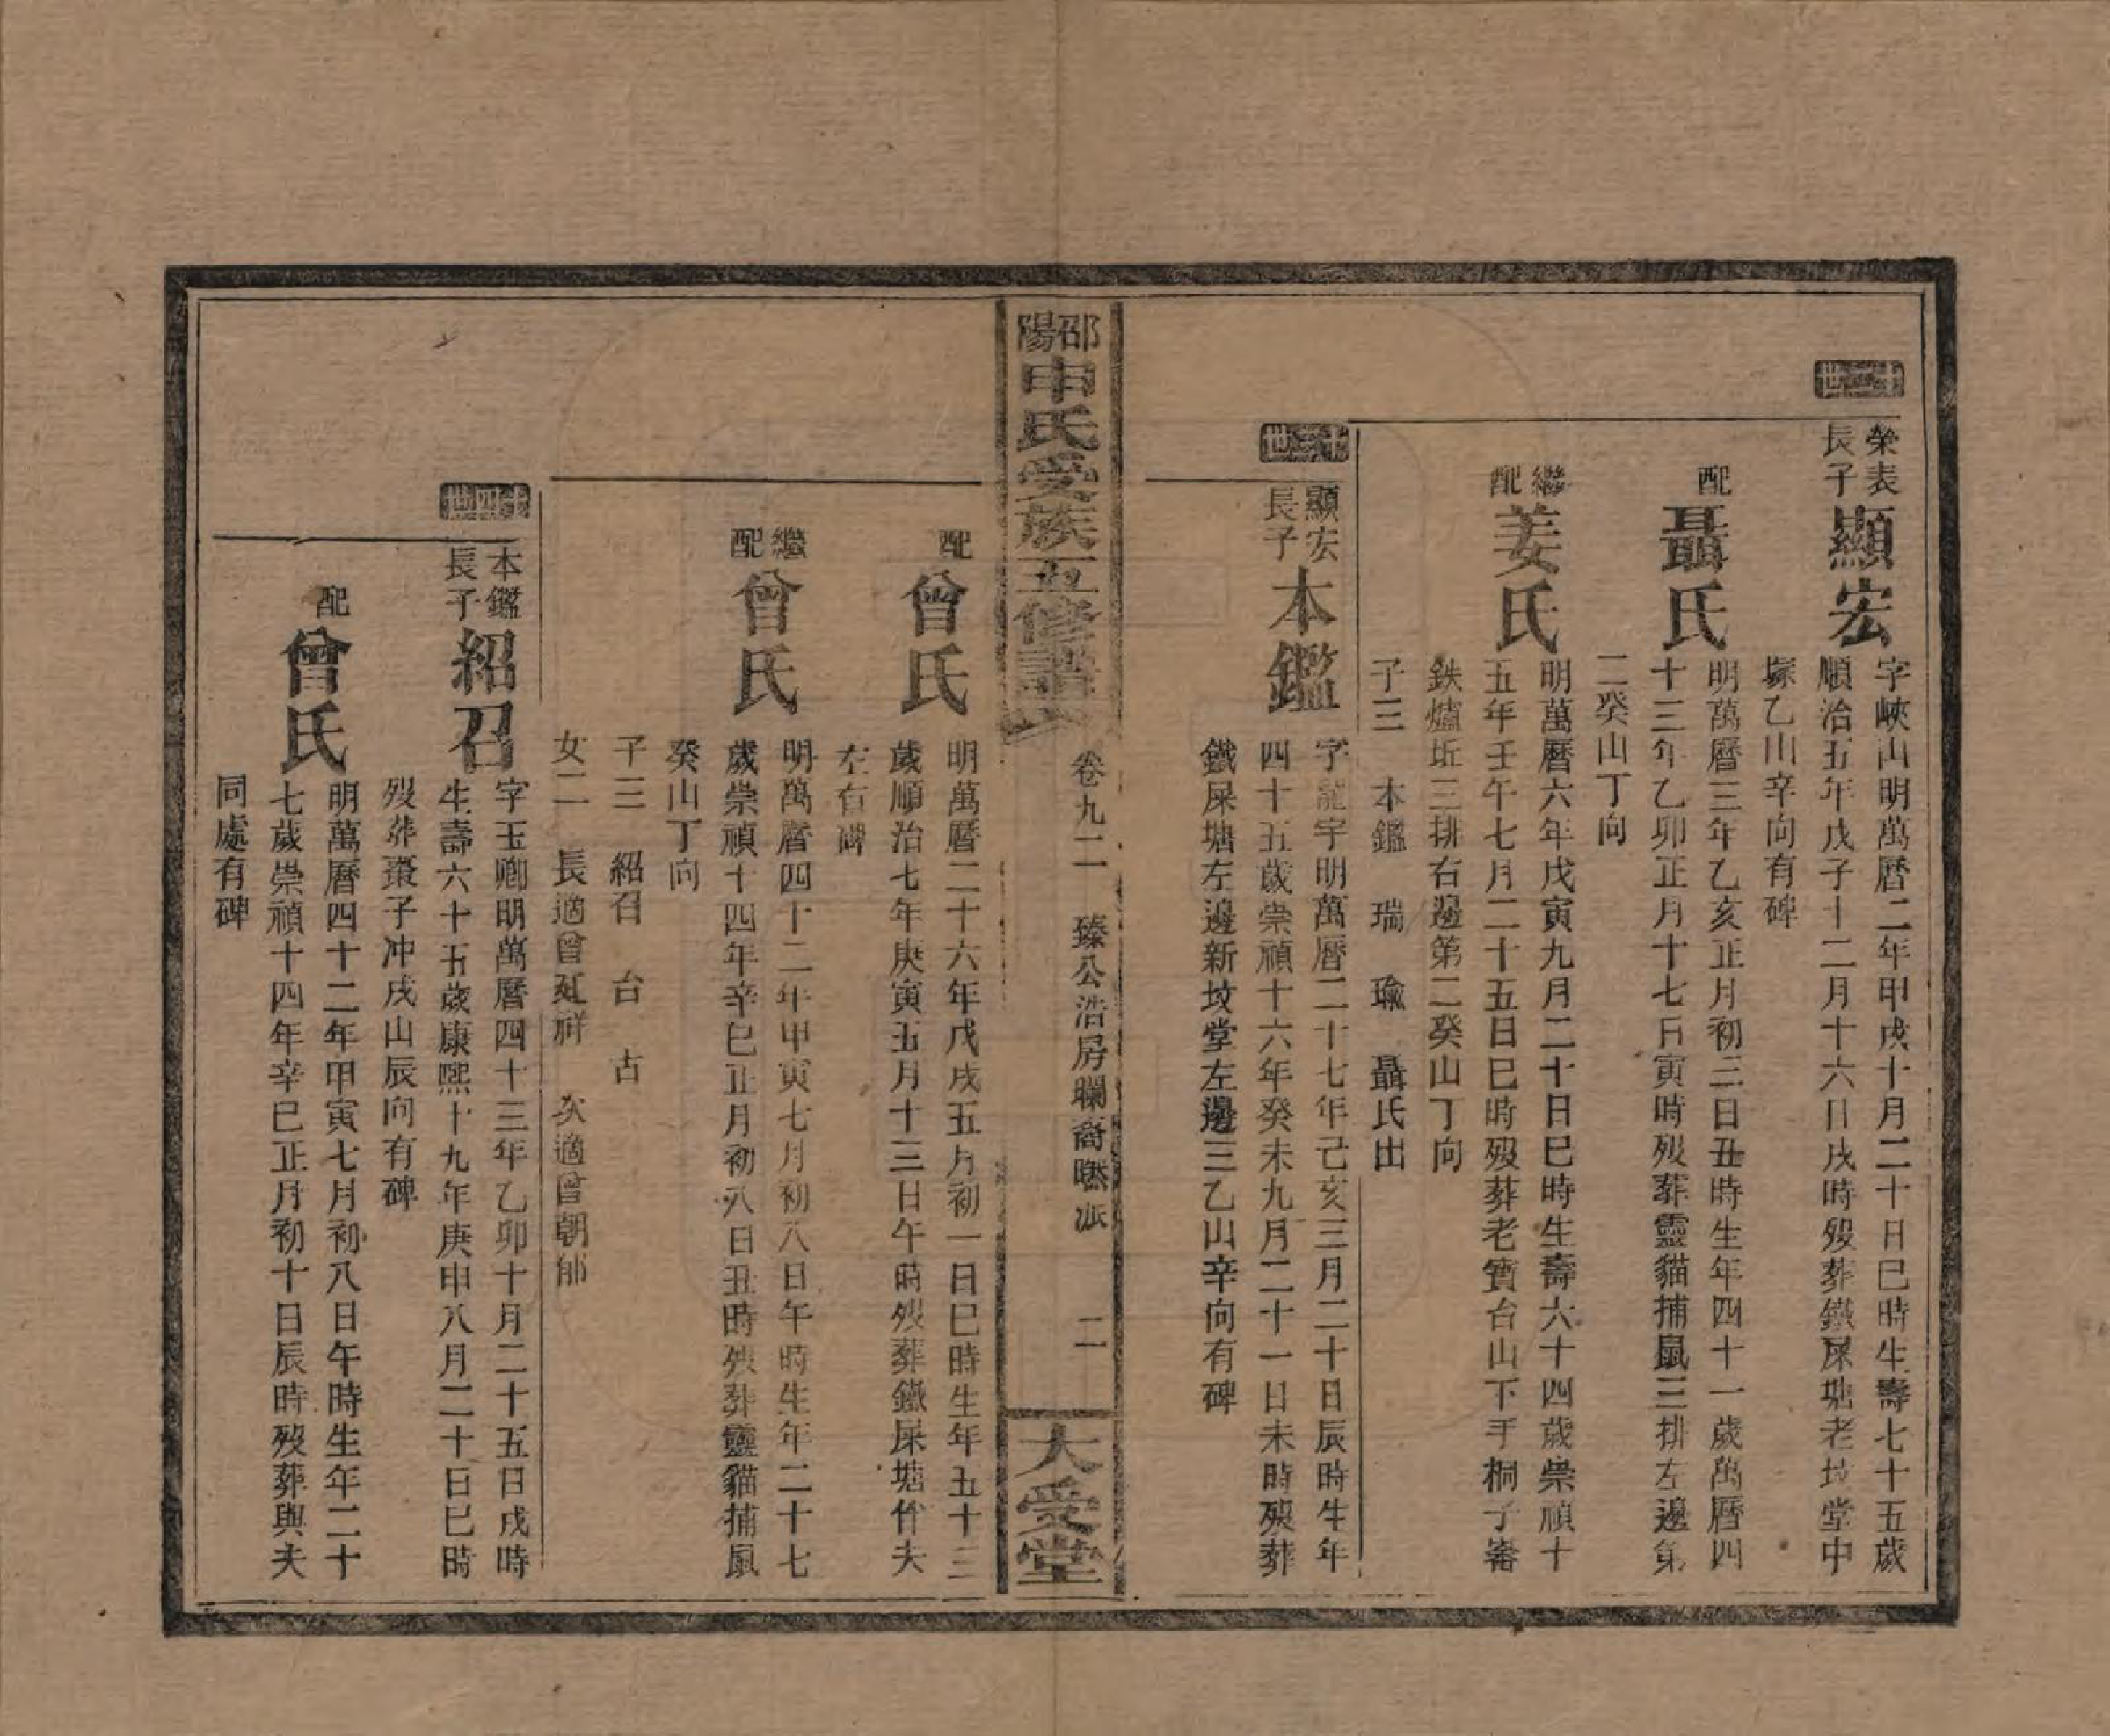 十二世
榮表
長子
顯宏
字峽山明萬曆二年甲戌十月二十日巳時生壽七十五歲
順治五年戊子十二月十六日戌時歿葬鐵屎塘老坟堂中
塚乙山辛向有碑
配
聶氏
明萬曆三年乙亥正月初三日丑時生年四十一歲萬曆四
十三年乙卯正月十七日寅時歿葬靈貓捕鼠三排左邊第
二癸山丁向
繼配
姜氏
明萬曆六年戊寅九月二十日巳時生壽六十四歲崇禎十
五年壬午七月二十五日巳時歿葬老寶台山下手桐子崙
鉄爐坵三排右邊第二癸山丁向
子三 本鑑 瑞 瑜 聶氏出
十三世
顯宏
長子
本鑑
字龍宇明萬曆二十七年己亥三月二十日辰時生年
四十五歲崇禎十六年癸未九月二十一日未時歿葬
鐵屎塘左邊新坟堂左邊三乙山辛向有碑
邵陽申氏受族五修譜
卷九二 臻公浩房瓓裔曖派 二
大受堂
配
曾氏
明萬曆二十六年戊戌五月初一日巳時生年五十三
歲順治七年庚寅五月十三日午時歿葬鐵屎塘仵夫
左有碑
繼配
曾氏
明萬曆四十二年甲寅七月初八日午時生年二十七
歲崇禎十四年辛巳正月初八日丑時歿葬靈貓捕鼠
癸山丁向
子三 紹召 台 古
女二 長適曾廷祥 次適曾朝
十四世
本鑑
長子
紹召
字玉卿明萬曆四十三年乙卯十月二十五日戌時
生壽六十五歲康熙十九年庚申八月二十日巳時
歿葬棗子冲戌山辰向有碑
配
曾氏
明萬曆四十二年甲寅七月初八日午時生年二十
七歲崇禎十四年辛巳正月初十日辰時歿葬與夫
同處有碑